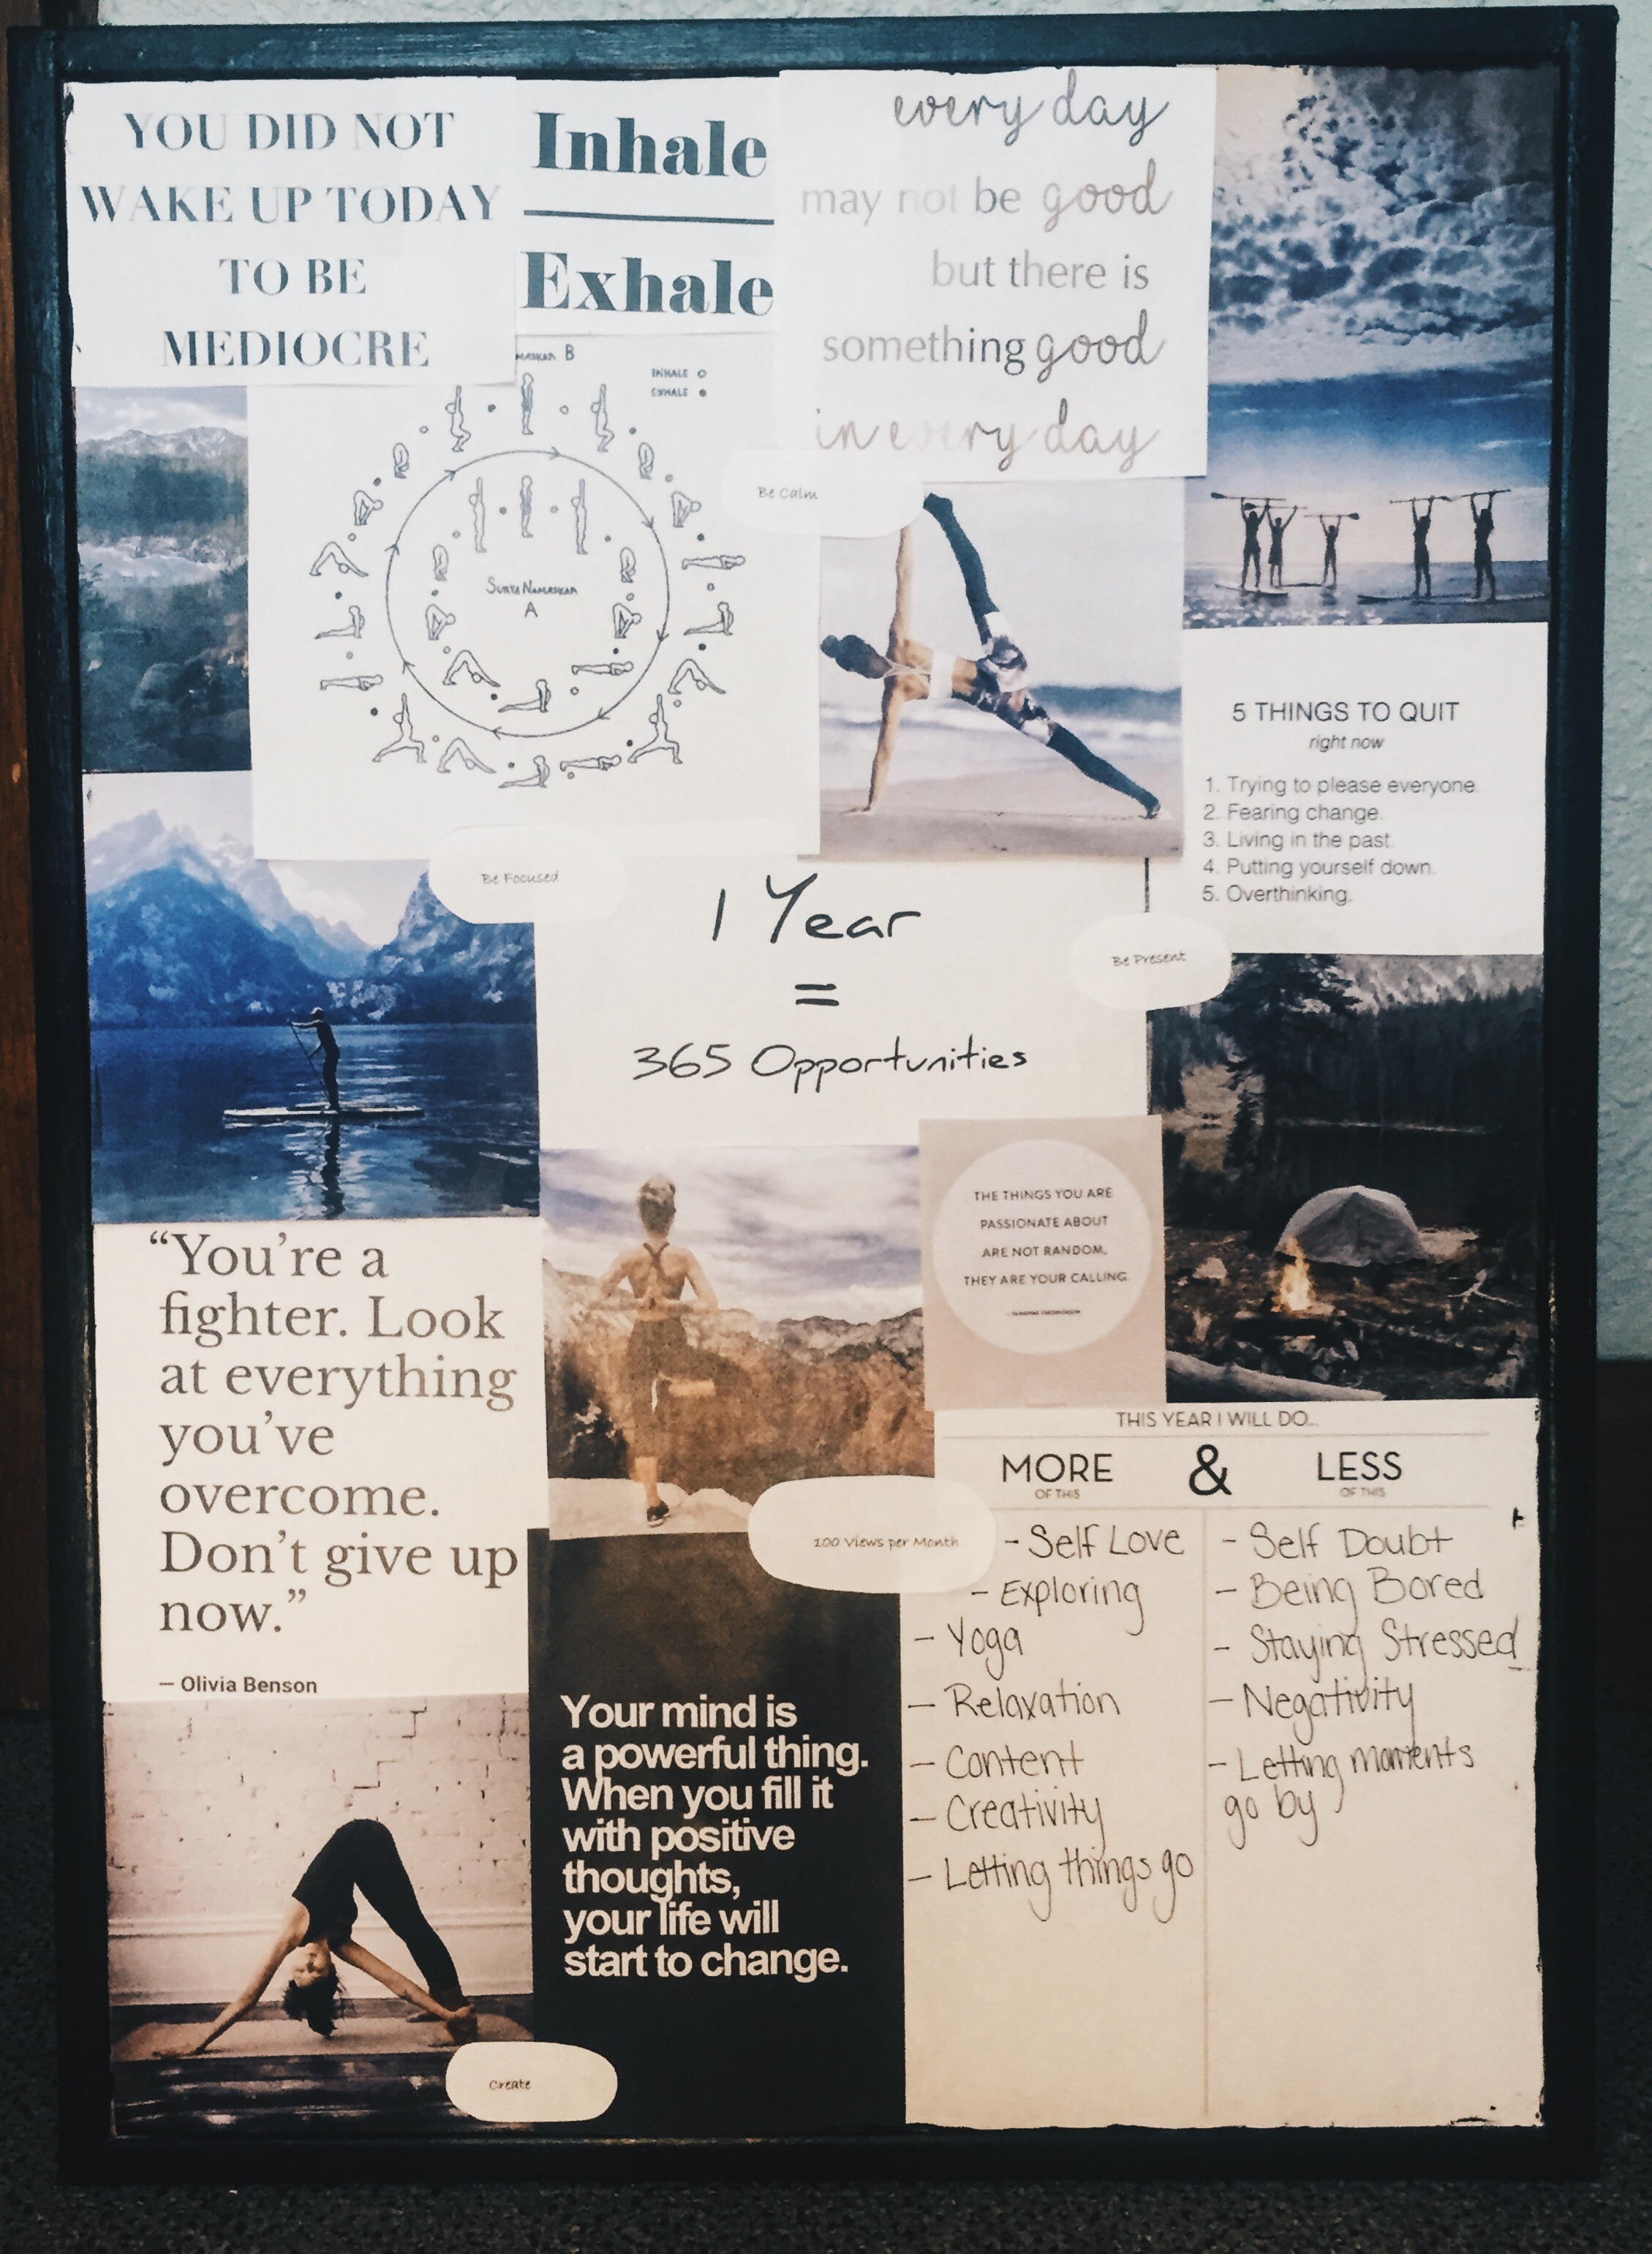 YOU DID NOT
WAKE UP TODAY
TO BE
MEDIOCRE
Inhale
Exhale
every day
may not be good
but there is
something good
in every day
B
INHALE
EXHALE
SURYA NAMASKAR
A
Be Calm
5 THINGS TO QUIT
right now
1. Trying to please everyone.
2. Fearing change.
3. Living in the past.
4. Putting yourself down.
5. Overthinking.
Be Focused
1 Year
=
365 Opportunities
Be Present
THE THINGS YOU ARE
PASSIONATE ABOUT
ARE NOT RANDOM,
THEY ARE YOUR CALLING.
"You're a
fighter. Look
at everything
you've
overcome.
Don't give up
now."
— Olivia Benson
100 Views per Month
THIS YEAR I WILL DO...
MORE & LESS
OF THIS OF THIS
- Self Love
- Exploring
- Yoga
- Relaxation
- Content
- Creativity
- Letting things go
- Self Doubt
- Being Bored
- Staying Stressed
- Negativity
- Letting moments
go by
Your mind is
a powerful thing.
When you fill it
with positive
thoughts,
your life will
start to change.
Create